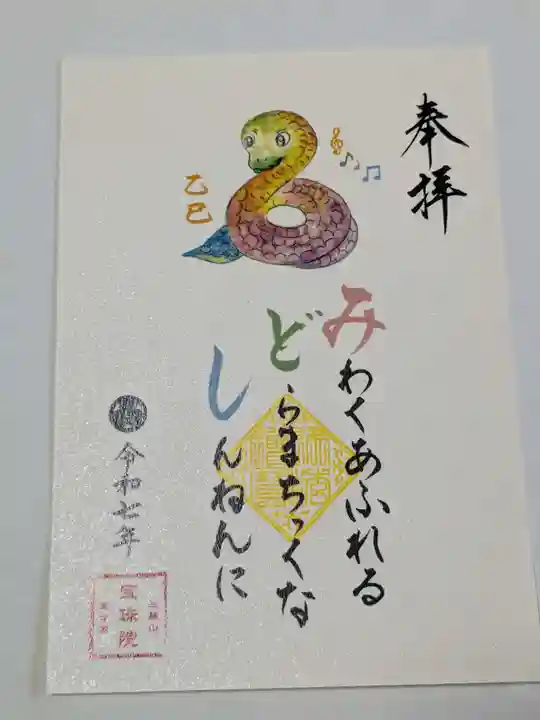 奉拝
乙巳
みわくあふれる
どらまちっくな
しんねんに
令和七年
三縁山
宝珠院